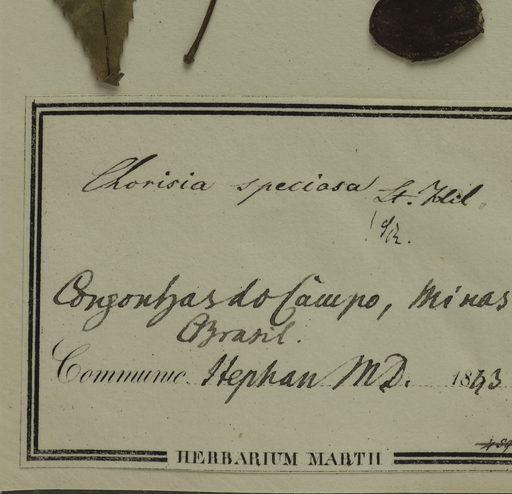 Chorisia speciosa St. Hil.
Congonhas do Câmpo, Minas
Brasil.
Communic. Stephan MD. 1843
HERBARIUM MARTII